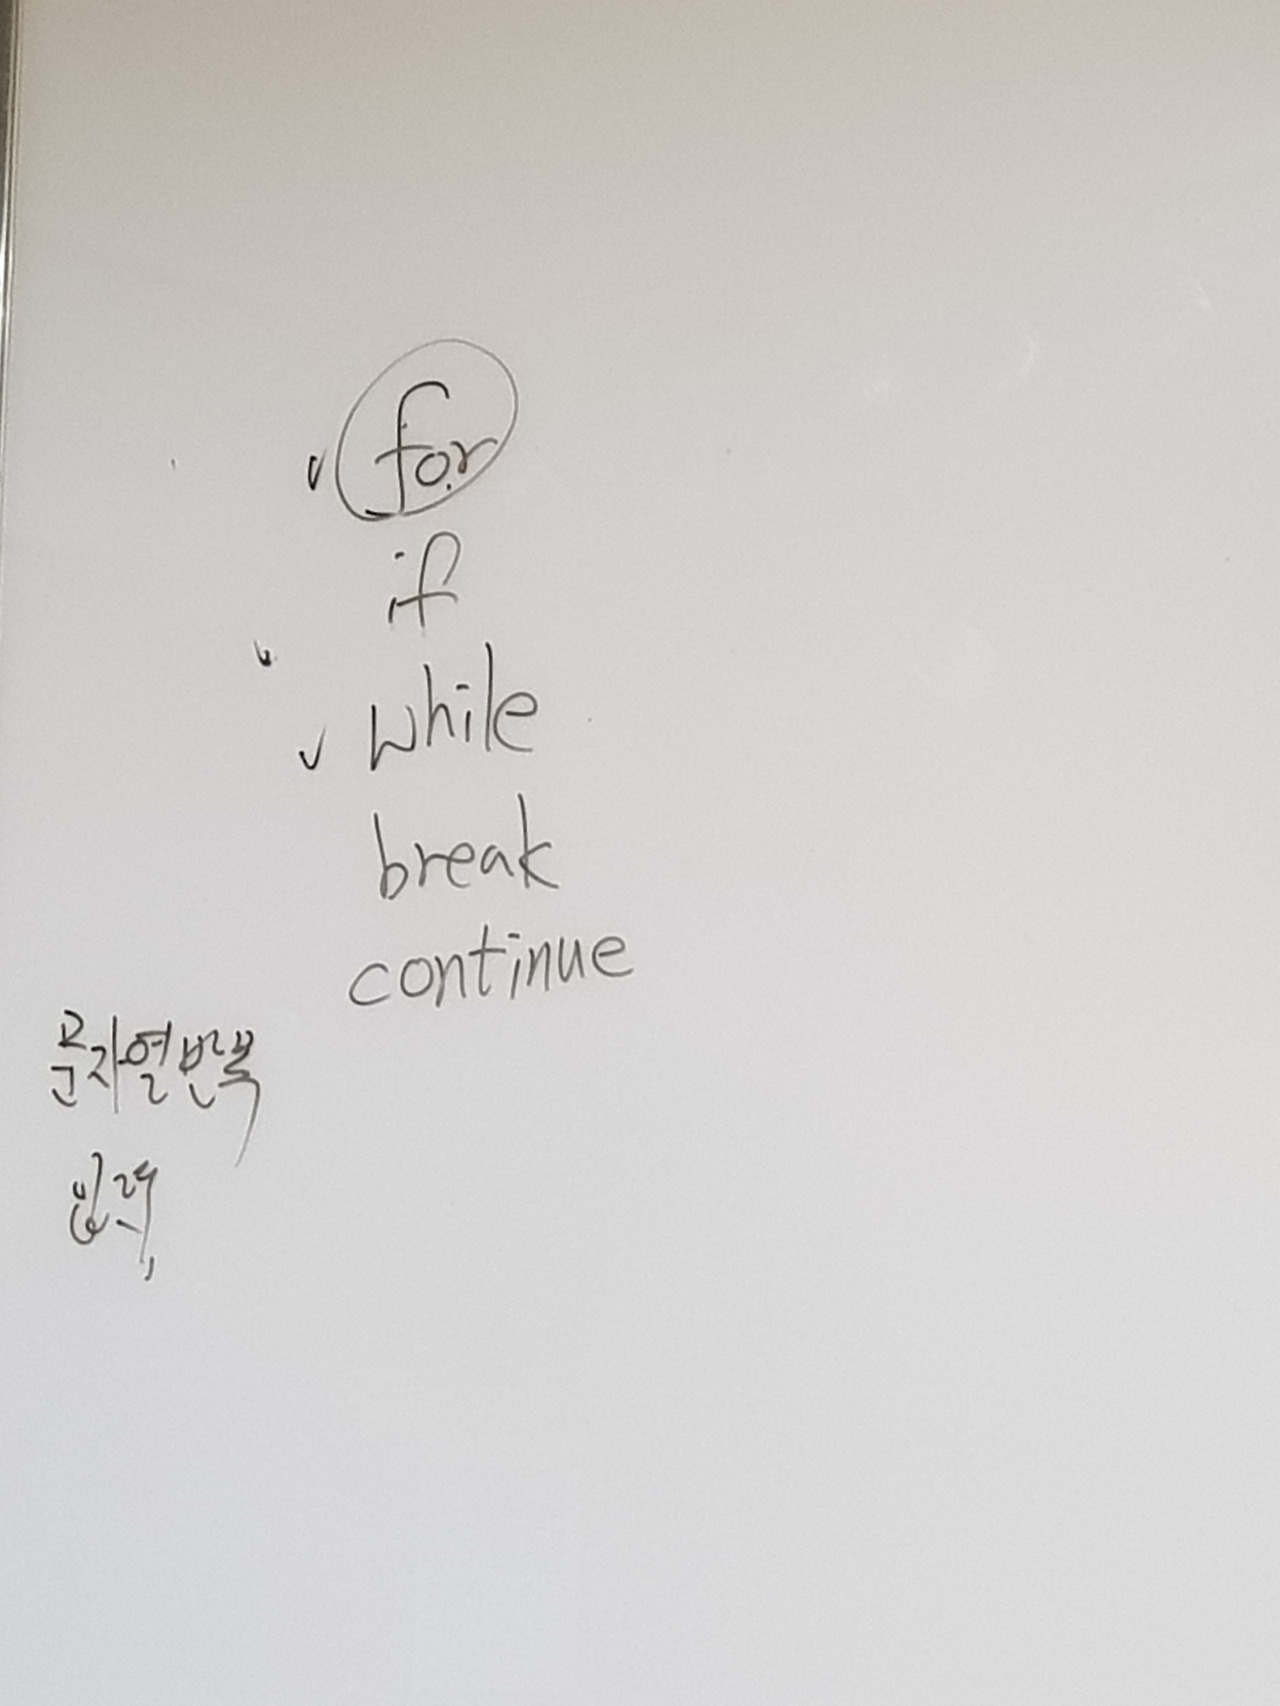 for
if
while
break
continue
문자열반복